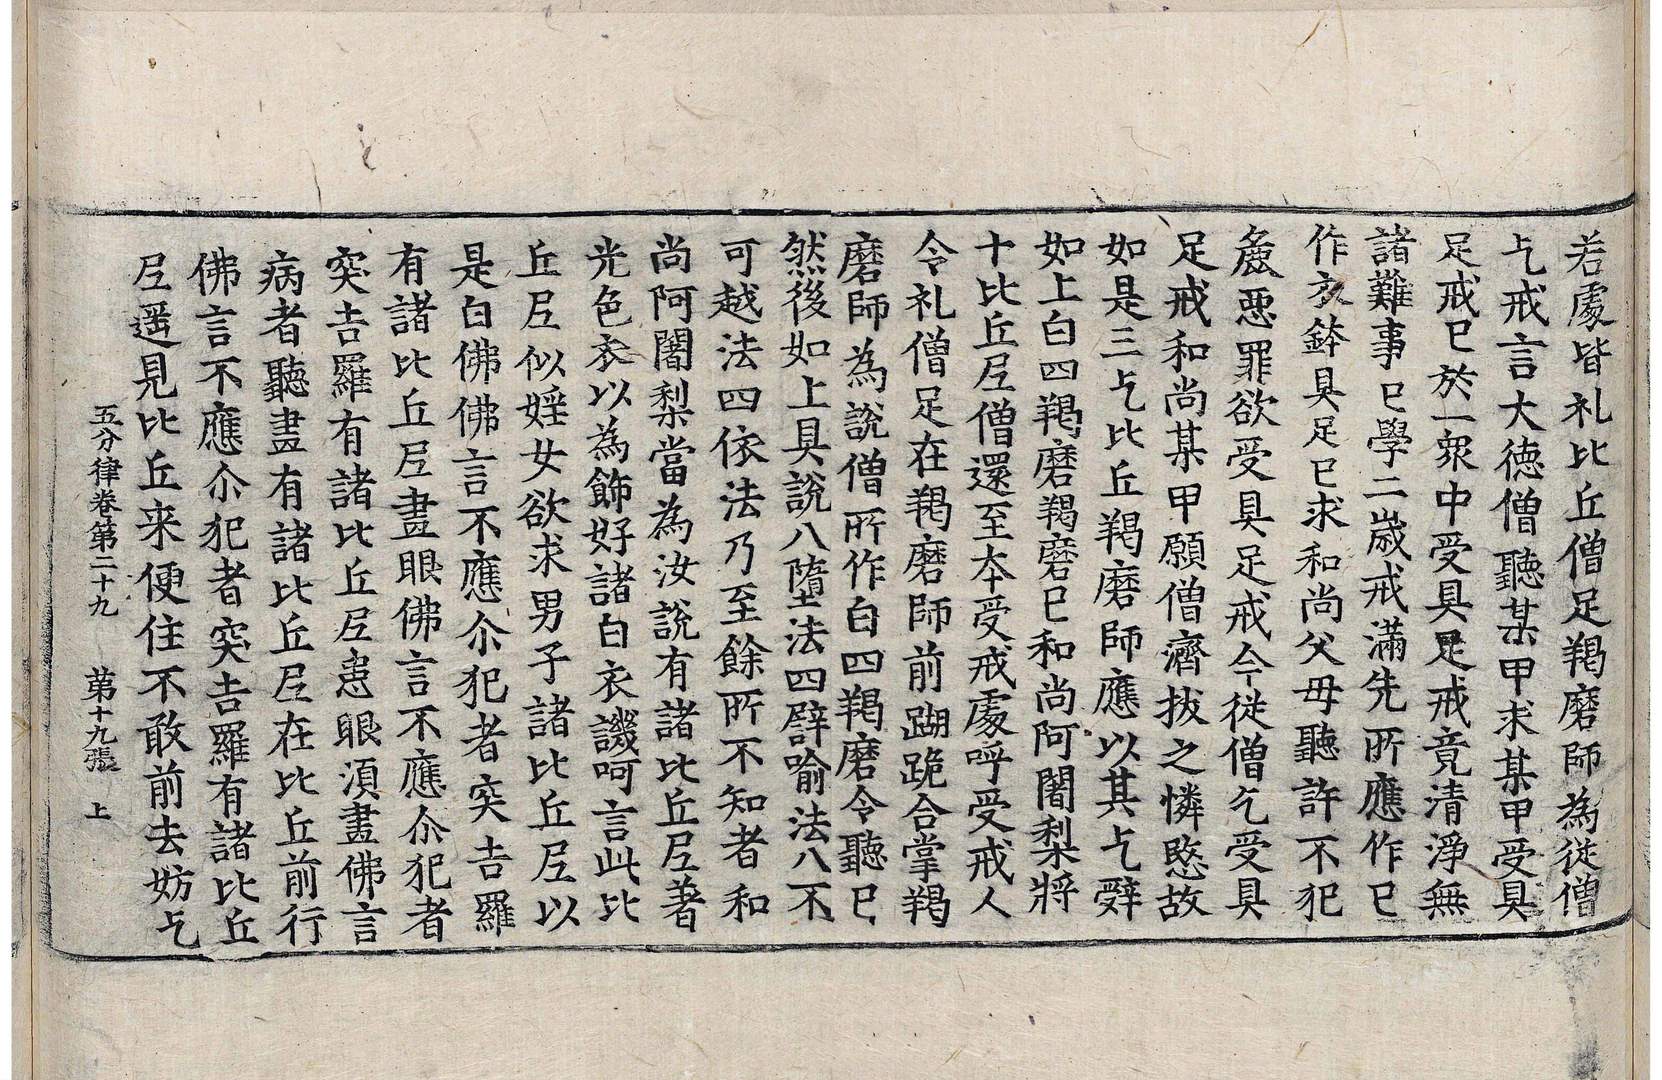 若處皆礼比丘僧足羯磨師為從僧
乞戒言大德僧聽某甲求某甲受具
足戒已於一衆中受具足戒竟清淨無
諸難事已學二歳戒滿先所應作已
作衣鉢具足已求和尚父母聽許不犯
麁惡罪欲受具足戒今從僧乞受具
足戒和尚某甲願僧濟拔之憐愍故
如是三乞比丘羯磨師應以其乞辤
如上白四羯磨羯磨已和尚阿闍梨將
十比丘尼僧還至本受戒處呼受戒人
令礼僧足在羯磨師前跏跪合掌羯
磨師為說僧所作白四羯磨令聽已
然後如上具說八墮法四譬喻法八不
可越法四依法乃至餘所不知者和
尚阿闍梨當為汝說有諸比丘尼著
光色衣以為飾好諸白衣譏呵言此比
丘尼似婬女欲求男子諸比丘尼以
是白佛佛言不應尒犯者突吉羅
有諸比丘尼畫眼佛言不應尒犯者
突吉羅有諸比丘尼患眼湏畫佛言
病者聽畫有諸比丘尼在比丘前行
佛言不應尒犯者突吉羅有諸比丘
尼遥見比丘来便住不敢前去妨乞
五分律卷第二十九 第十九張 上